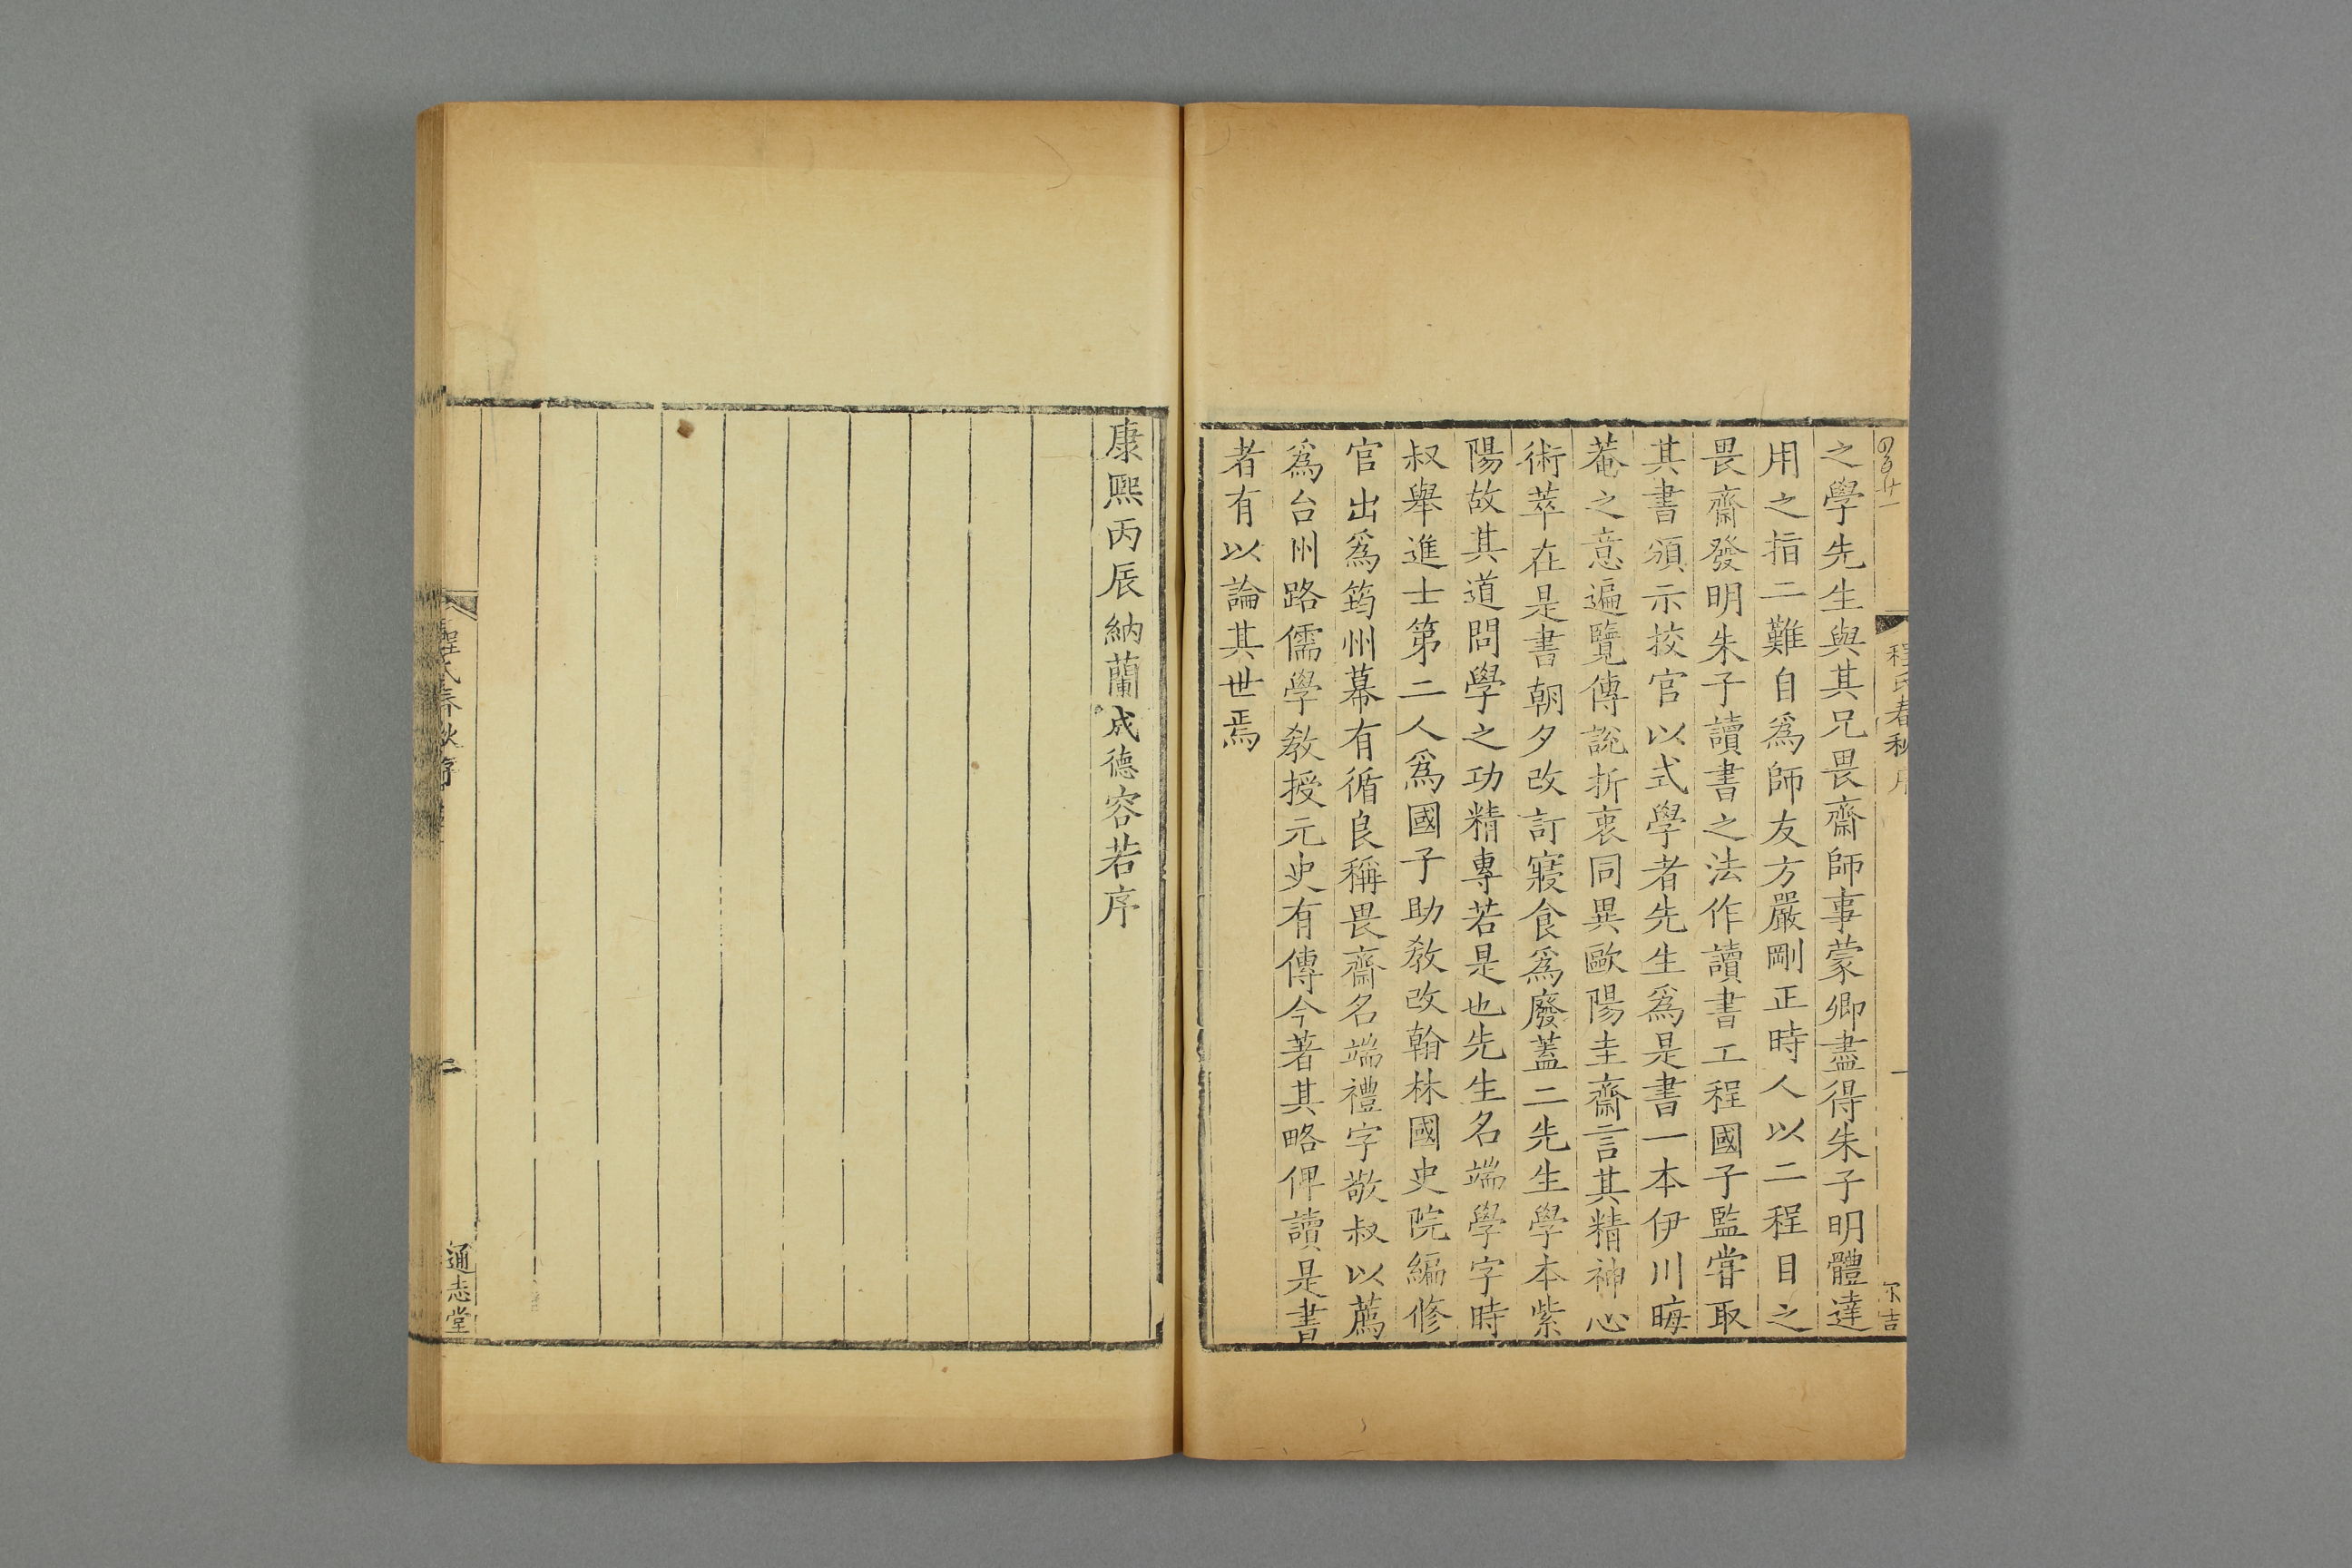 程氏春秋序
一
之學先生與其兄畏齋師事蒙卿盡得朱子明體達
用之指二難自爲師友方嚴剛正時人以二程目之
畏齋發明朱子讀書之法作讀書工程國子監嘗取
其書頒示挍官以式學者先生爲是書一本伊川晦
菴之意遍覽傳說折衷同異歐陽圭齋言其精神心
術萃在是書朝夕改訂寢食爲廢蓋二先生學本紫
陽故其道問學之功精專若是也先生名端學字時
叔舉進士第二人爲國子助敎改翰林國史院編修
官出爲筠州幕有循良稱畏齋名端禮字敬叔以薦
爲台州路儒學敎授元史有傳今著其略俾讀是書
者有以論其世焉
康熙丙辰納蘭成德容若序
程氏春秋序
二
通志堂